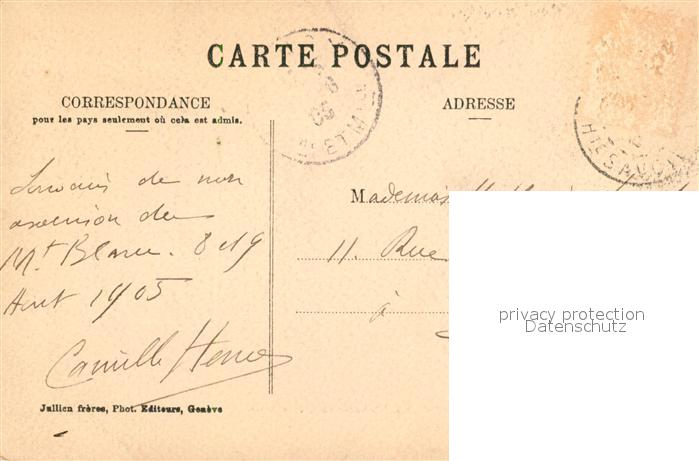 CARTE POSTALE
CORRESPONDANCE
pour les pays seulement où cela est admis.
ADRESSE
Souvenir de mon
ascension du
Mt Blanc. 8 et 9
Aout 1905
Camille
Jullien frères, Phot. Editeurs, Genève
11. Rue
à
privacy protection
Datenschutz